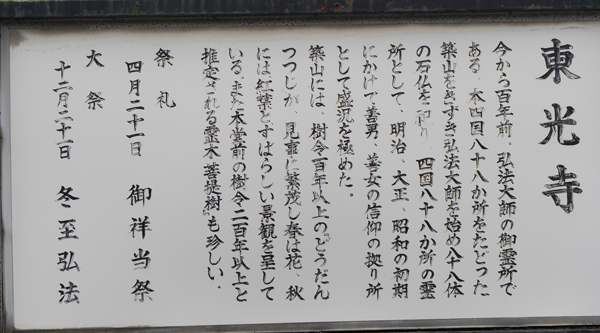 東光寺
今から百年前、弘法大師の御霊所で
ある、本四国八十八か所をたどった
築山をきずき弘法大師を始め八十八体
の石仏を祀り 四国八十八か所の霊
所として、明治、大正、昭和の初期
にかけて善男、善女の信仰の拠り所
として盛況を極めた。
築山には、樹令百年以上の『どうだん
つつじ』が、見事に繁茂し春は花、秋
には紅葉とすばらしい景観を呈して
いる。また本堂前の樹令二百年以上と
推定される霊木『菩提樹』も珍しい。
祭礼
四月二十一日 御祥当祭
大祭
十二月二十一日 冬至弘法